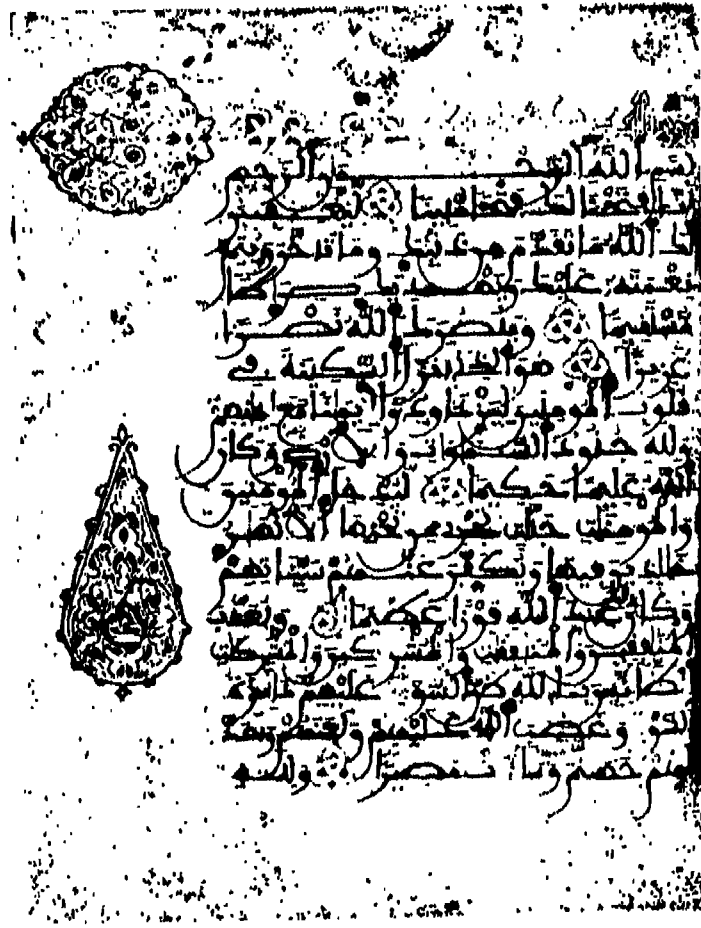 بسم الله الرحمن الرحيم
إنا فتحنا لك فتحا مبينا ليغفر
لك الله ما تقدم من ذنبك وما تأخر ويتم
نعمته عليك ويهديك صرطا
مستقيما وينصرك الله نصرا
عزيزا هو الذي أنزل السكينة في
قلوب المومنين ليزدادوا إيمنا مع إيمنهم
ولله جنود السموت والأرض وكان
الله عليما حكيما ليدخل المومنين
والمومنت جنت تجري من تحتها الأنهر
خلدين فيها ويكفر عنهم سيئاتهم
وكان ذلك عند الله فوزا عظيما ويعذب
المنفقين والمنفقت والمشركين والمشركت
الظانين بالله ظن السوء عليهم دائرة
السوء وغضب الله عليهم ولعنهم وأعد
لهم جهنم وساءت مصيرا ولله